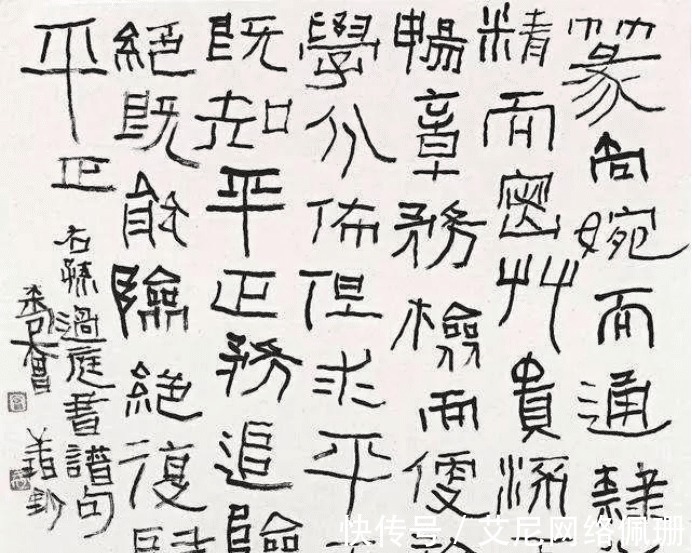 篆尚婉而通隸
精而密艸貴流
暢章務檢而便
學分佈但求平
既知平正務追險
絕既能險絕復
平正
右孫過庭書譜句
快传号 / 艾尼网络佩珊